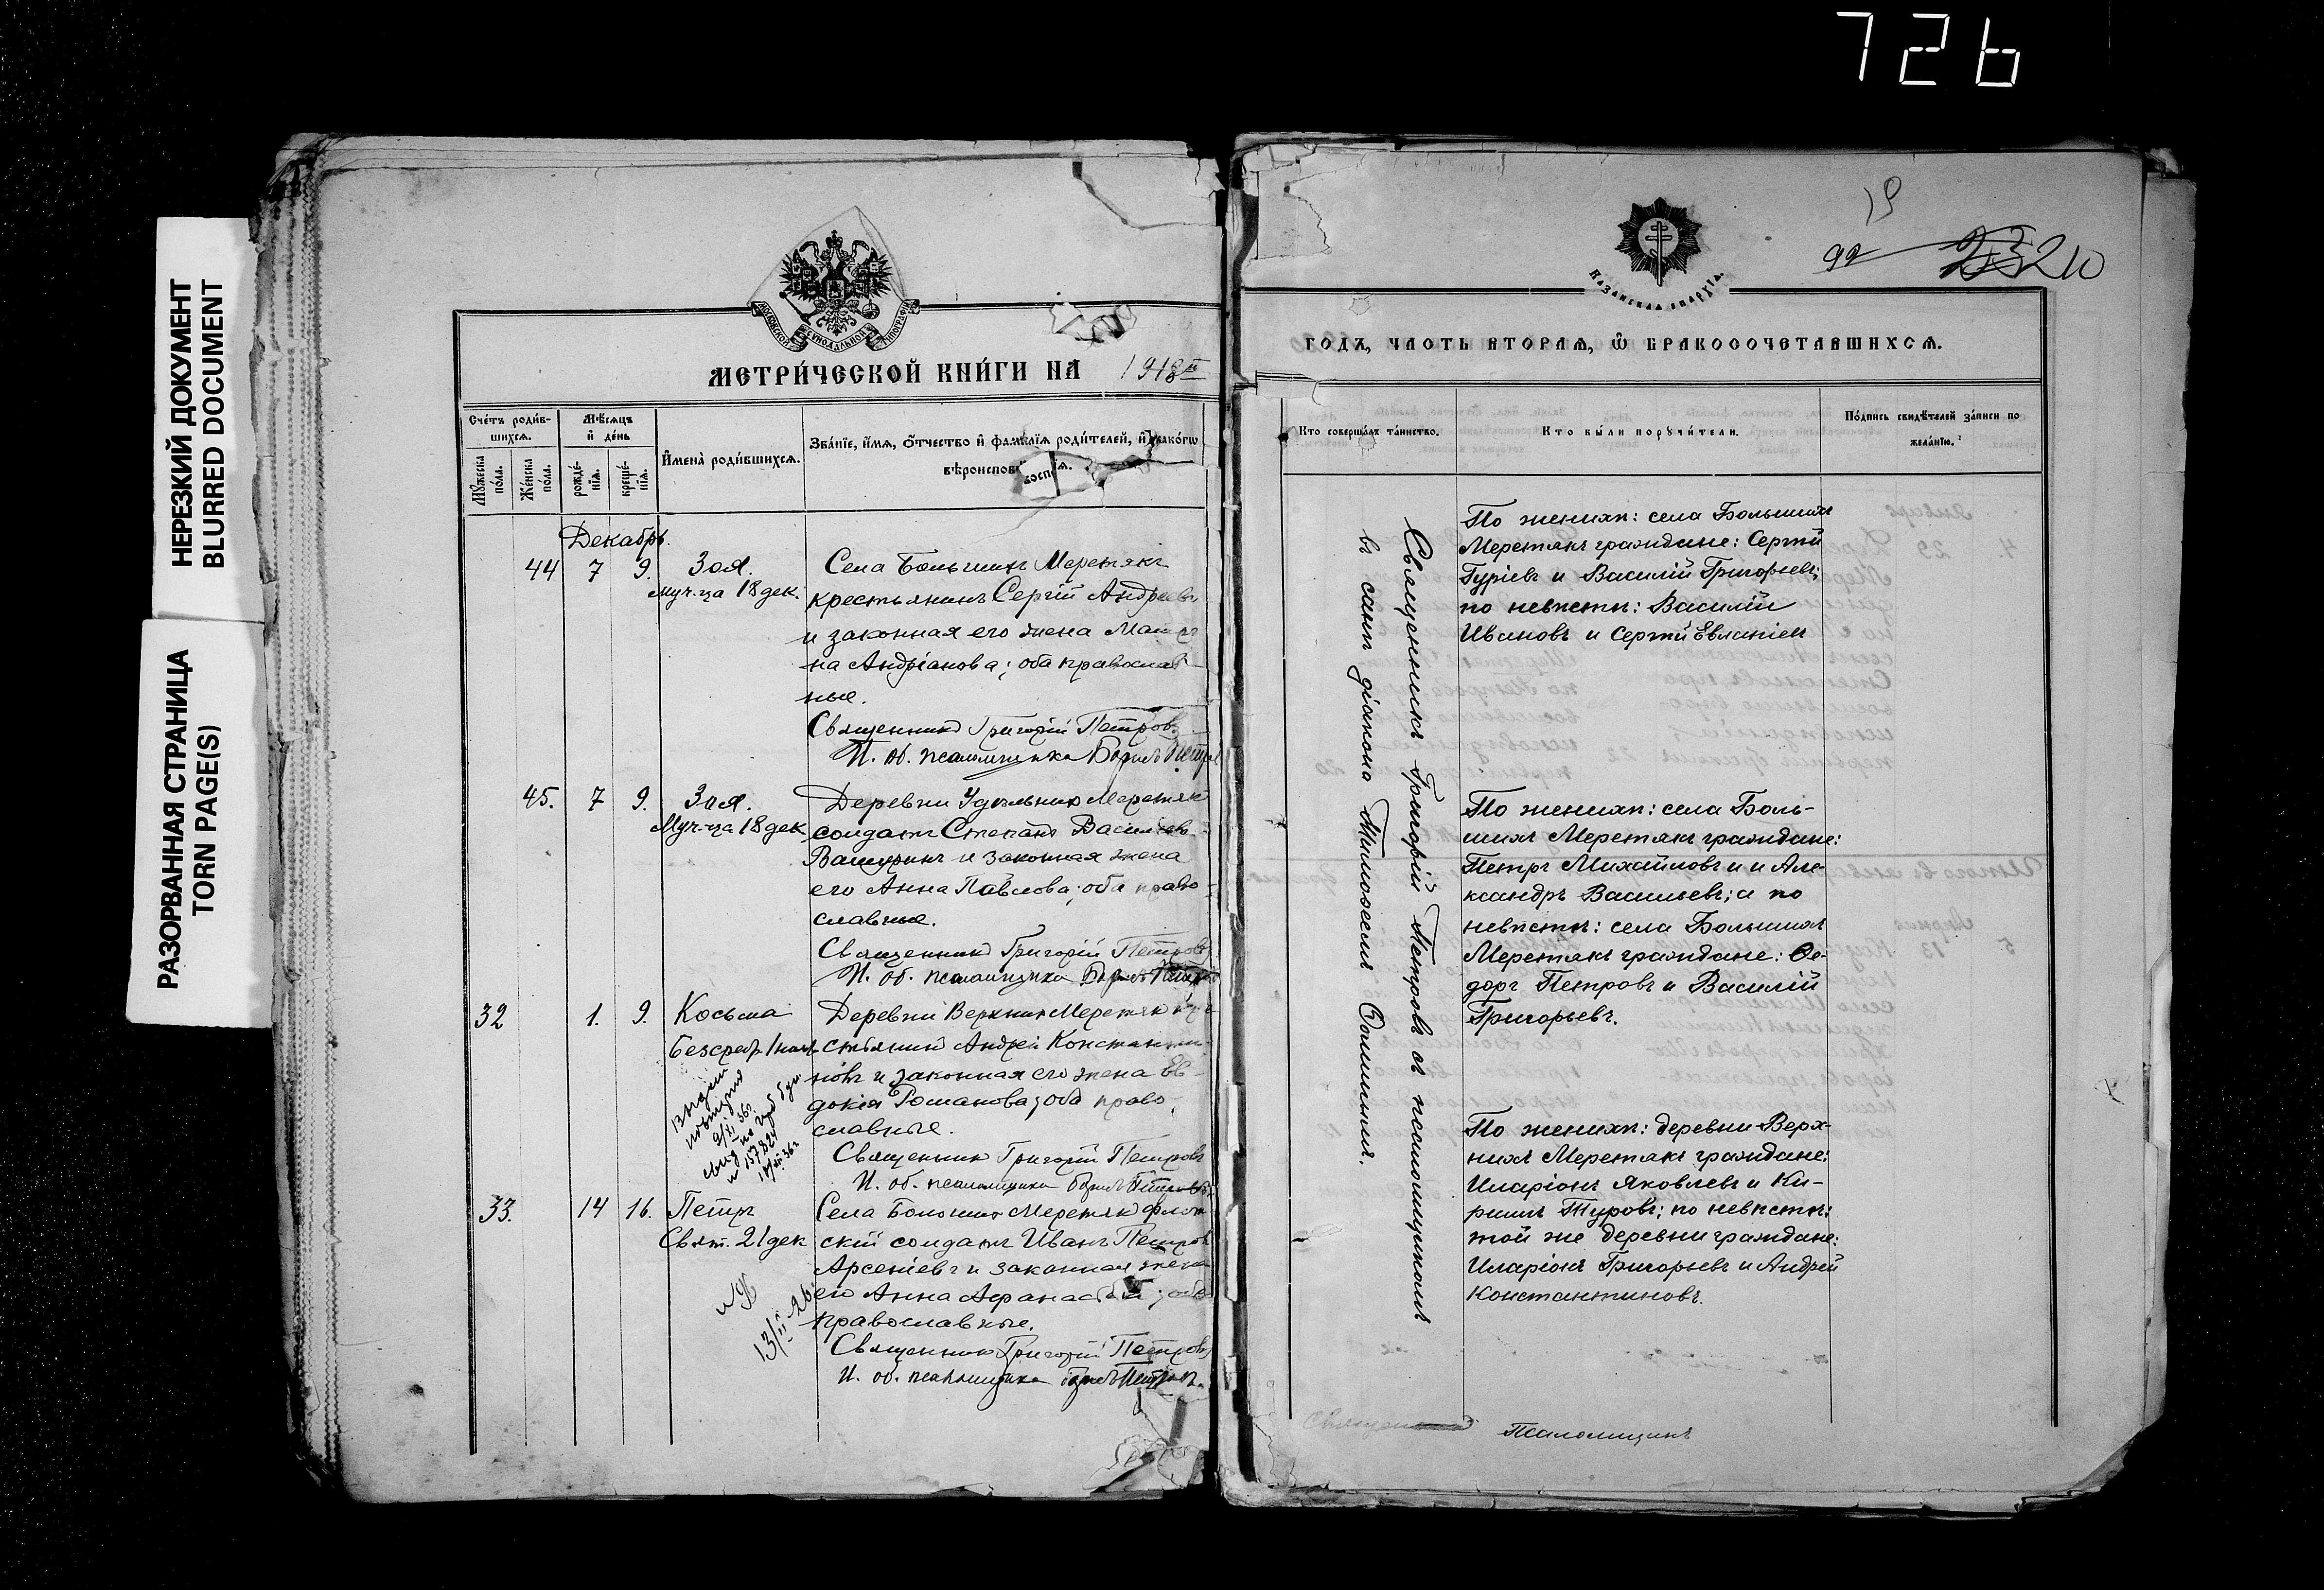 726
НЕРЕЗКИЙ ДОКУМЕНТ
BLURRED DOCUMENT
РАЗОРВАННАЯ СТРАНИЦА
TORN PAGE(S)
МОСКОВСКОЙ СѴНОДАЛЬНОЙ ТИПОГРАФІИ
МЕТРИ́ЧЕСКОЙ КНИ́ГИ НА 1918
Сче́тъ роди́в-
шихсѧ.
Мꙋ́жеска по́ла.
Же́нска по́ла.
Мѣ́сѧцъ
и҆ де́нь
рожде́-
нїѧ.
креще́-
нїѧ.
И҆мена̀ роди́вшихсѧ.
Зва́нїе, и҆́мѧ, ѻ҆́тчество и҆ фами́лїѧ роди́телей, и҆ како́гѡ
вѣроиспов
Декабрь.
44 7 9. Зоя.
муч-ца 18 дек.
Села Большихъ Меретякъ
крестьянинъ Сергій Андреевъ
и законная его жена
на Андріанова; оба православ-
ные.
Священникъ Григорій Петровъ
И. об. псаломщика Борисъ Петров
45. 7 9. Зоя.
Муч-ца 18 дек
Деревни Удѣльныхъ Меретякъ
солдатъ Степанъ Васильевъ
и законная жена
его Анна Павлова; оба право-
славные.
Священникъ Григорій Петровъ
И. об. псаломщика Борисъ Петров
32 1. 9. Косьма
Безсреб. 1 нояб.
Деревни Верхнихъ Меретякъ кре
стьянинъ Андрей Константи-
новъ и законная его жена Ев-
докія Романова; оба право-
славные.
Священникъ Григорій Петровъ
И. об. псаломщика Борисъ Петровъ
33. 14 16. Петръ
Свят. 21 дек
Села Большихъ Меретякъ флот
скій солдатъ Иванъ Петров
Арсеніевъ и законная жена
его Анна Афанасьева; оба
православные.
Священникъ Григорій Петровъ
И. об. псаломщика Борисъ Петровъ.
19
92
КАЗАНСКАѦ ЕПАРХЇѦ.
ГОДЪ, ЧАСТЬ ВТОРАѦ, Ѡ҆ БРАКОСОЧЕТАВШИХСѦ.
Кто соверша́лъ та́инство.
Кто бы́ли порꙋчи́тели.
По́дпись свидѣ́телей за́писи по
жела́нїю.
Священникъ Григорій Петровъ съ псаломщикомъ
въ санѣ діакона Тимоѳеемъ
По женихѣ: села Большихъ
Меретякъ граждане: Сергѣй
Гуріевъ и Василій Григорьевъ;
по невѣстѣ: Василій
Ивановъ и Сергѣй Евланпіевъ
По женихѣ: села Боль-
шихъ Меретякъ граждане:
Петръ Михайловъ и и Але-
ксандръ Васильевъ; а по
невѣстѣ: села Большихъ
Меретякъ граждане: Ѳе-
доръ Петровъ и Василій
Григорьевъ.
По женихѣ: деревни Верх-
нихъ Меретякъ граждане:
Иларіонъ Яковлевъ и Ки-
риллъ Туровъ; по невѣстѣ:
той же деревни граждане:
Иларіонъ Григорьевъ и Андрей
Константиновъ.
Псаломщикъ